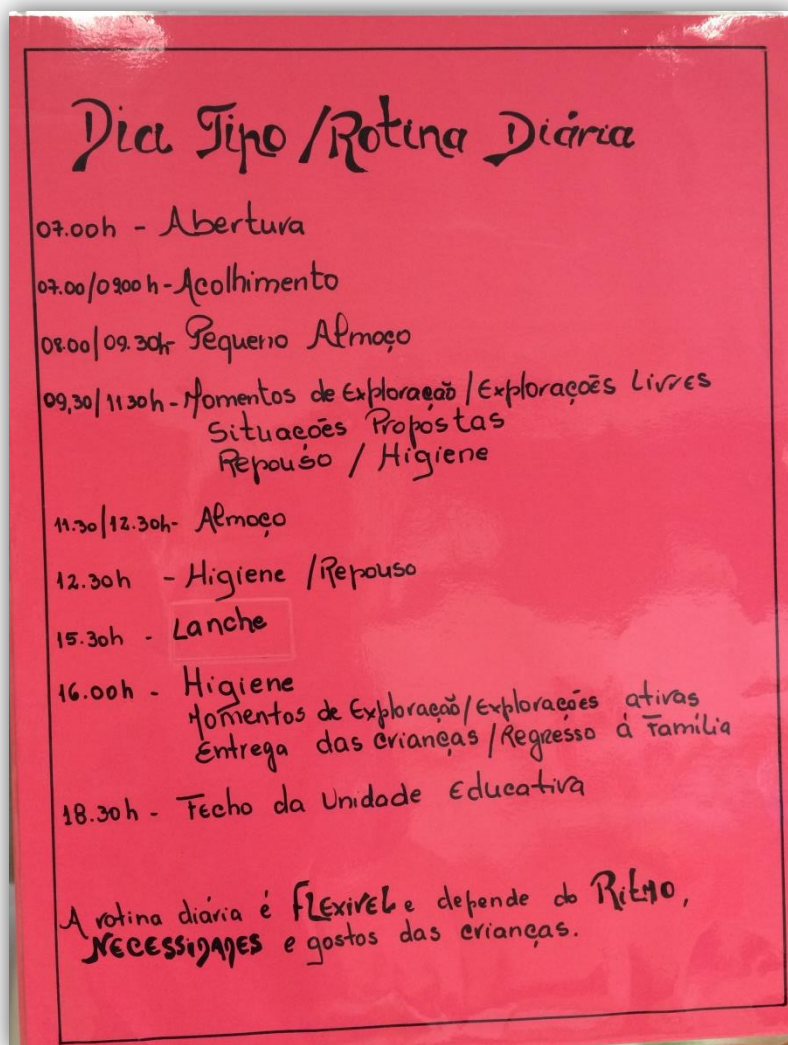 Dia Tipo / Rotina Diária
07.00h - Abertura
07.00/0900h - Acolhimento
08.00/09.30h- Pequeno Almoço
09,30/11 30h - Momentos de Exploração / Explorações Livres
Situações Propostas
Repouso / Higiene
11.30/12.30h- Almoço
12.30h - Higiene / Repouso
15.30h - Lanche
16.00h - Higiene
Momentos de Exploração / Explorações ativas
Entrega das crianças / Regresso à Família
18.30h - Fecho da Unidade Educativa
A rotina diária é FLExivEL e depende do RitMO,
NECESSiDADES e gostos das crianças.